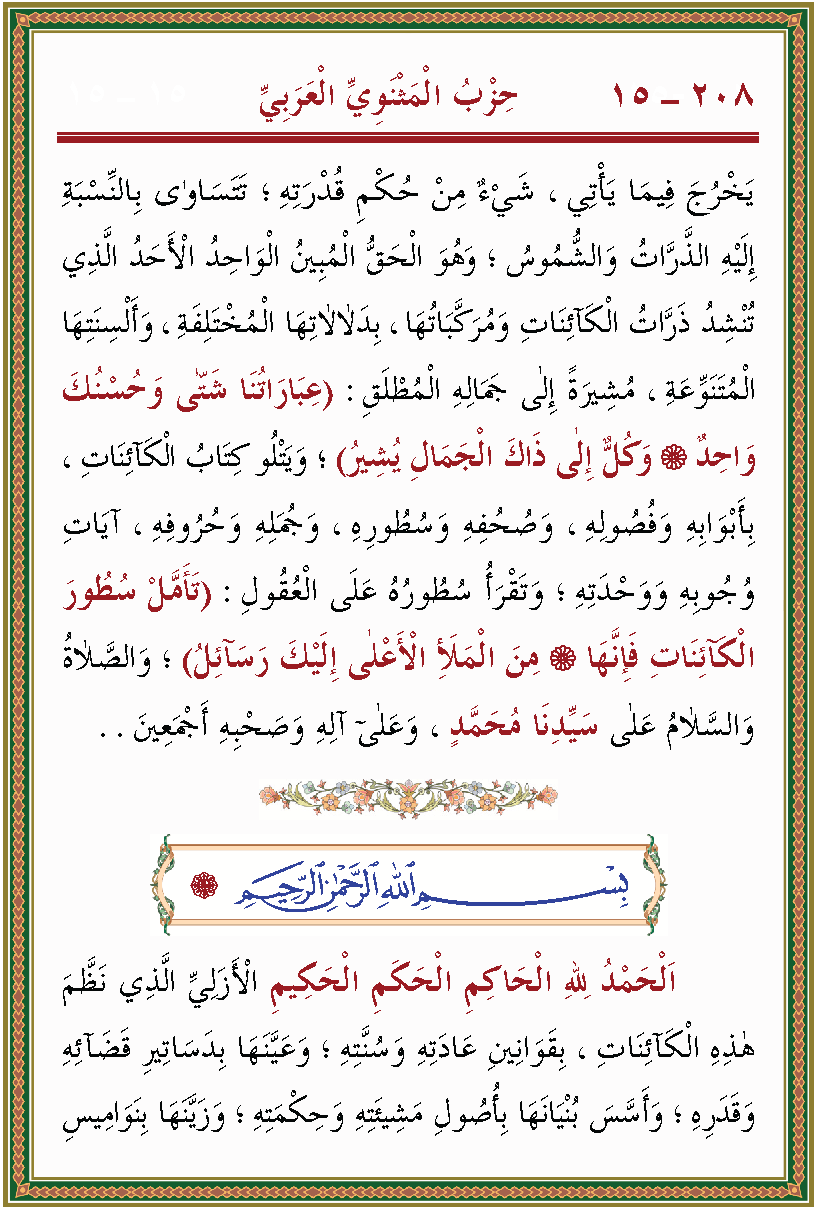 ٢٠٨ – ١٥ حِزْبُ الْمَثْنَوِيِّ الْعَرَبِيِّ ١٥ – ١٥
يَخْرُجَ فِيمَا يَأْتِي ، شَيْءٌ مِنْ حُكْمِ قُدْرَتِهِ ؛ تَتَسَاوٰى بِالنِّسْبَةِ
إِلَيْهِ الذَّرَّاتُ وَالشُّمُوسُ ؛ وَهُوَ الْحَقُّ الْمُبِينُ الْوَاحِدُ الْأَحَدُ الَّذِي
تُنْشِدُ ذَرَّاتُ الْكَآئِنَاتِ وَمُرَكَّبَاتُهَا ، بِدَلَالَاتِهَا الْمُخْتَلِفَةِ ، وَأَلْسِنَتِهَا
الْمُتَنَوِّعَةِ ، مُشِيرَةً إِلٰى جَمَالِهِ الْمُطْلَقِ : (عِبَارَاتُنَا شَتّٰى وَحُسْنُكَ
وَاحِدٌ ❁ وَكُلٌّ إِلٰى ذَاكَ الْجَمَالِ يُشِيرُ) ؛ وَيَتْلُو كِتَابُ الْكَآئِنَاتِ ،
بِأَبْوَابِهِ وَفُصُولِهِ ، وَصُحُفِهِ وَسُطُورِهِ ، وَجُمَلِهِ وَحُرُوفِهِ ، آيَاتِ
وُجُوبِهِ وَوَحْدَتِهِ ؛ وَتَقْرَأُ سُطُورُهُ عَلَى الْعُقُولِ : (تَأَمَّلْ سُطُورَ
الْكَآئِنَاتِ فَإِنَّهَا ❁ مِنَ الْمَلَأِ الْأَعْلٰى إِلَيْكَ رَسَآئِلُ) ؛ وَالصَّلَاةُ
وَالسَّلَامُ عَلٰى سَيِّدِنَا مُحَمَّدٍ ، وَعَلٰىٓ آلِهِ وَصَحْبِهِ أَجْمَعِينَ . .
بِسْمِ ٱللهِ ٱلرَّحْمٰنِ ٱلرَّحِيمِ ❁
اَلْحَمْدُ لِلّٰهِ الْحَاكِمِ الْحَكَمِ الْحَكِيمِ الْأَزَلِيِّ الَّذِي نَظَّمَ
هٰذِهِ الْكَآئِنَاتِ ، بِقَوَانِينِ عَادَتِهِ وَسُنَّتِهِ ؛ وَعَيَّنَهَا بِدَسَاتِيرِ قَضَآئِهِ
وَقَدَرِهِ ؛ وَأَسَّسَ بُنْيَانَهَا بِأُصُولِ مَشِيئَتِهِ وَحِكْمَتِهِ ؛ وَزَيَّنَهَا بِنَوَامِيسِ